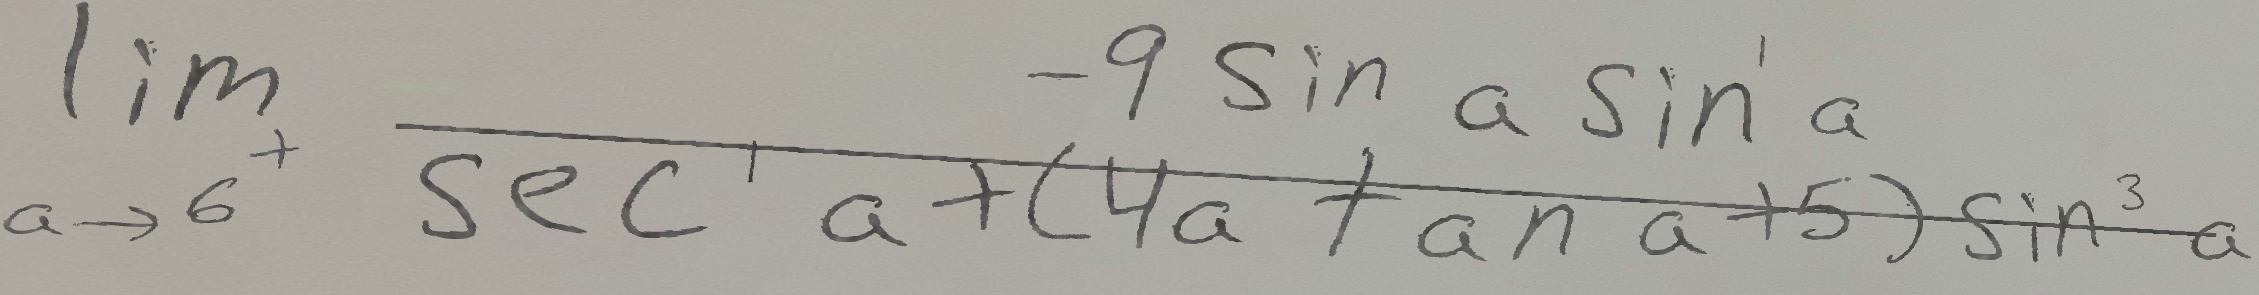 \lim_{a \to 6^+} \frac{-9 \sin a \sin^1 a}{\sec^1 a + (4a \tan a + 5) \sin^3 a}